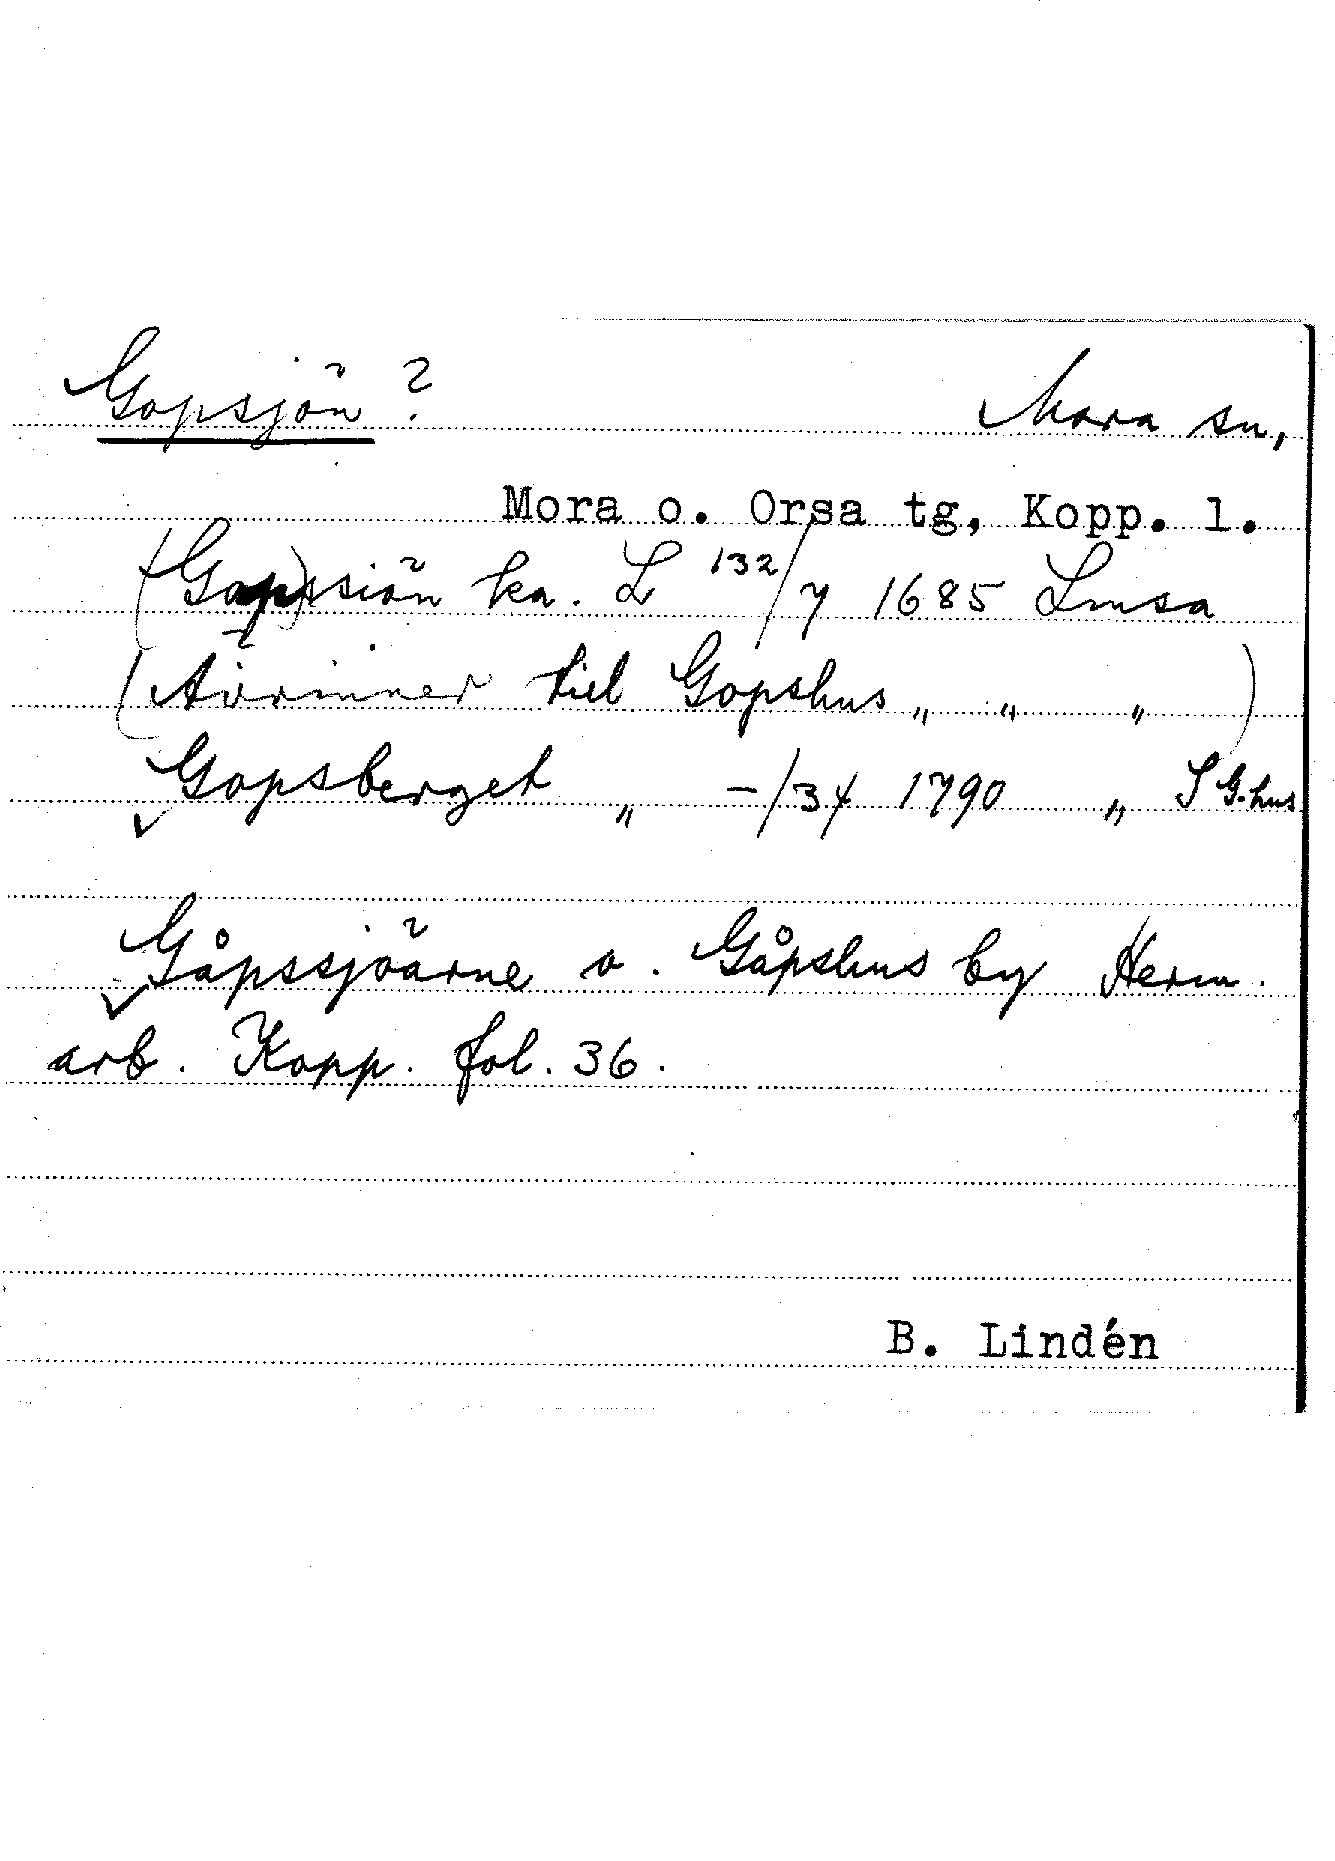 Gopsjön?
Mora sn,
Mora o. Orsa tg, Kopp. l.
(Gap)ssiön ka. L 132/7 1685 Lmsa
(Avrinner till Gopshus „ „ „)
Gopsberget „ -/34 1790 „ S G.hus
Gåpssjöarne o. Gåpshus by Herm.
arb. Kopp. fol. 36.
B. Lindén